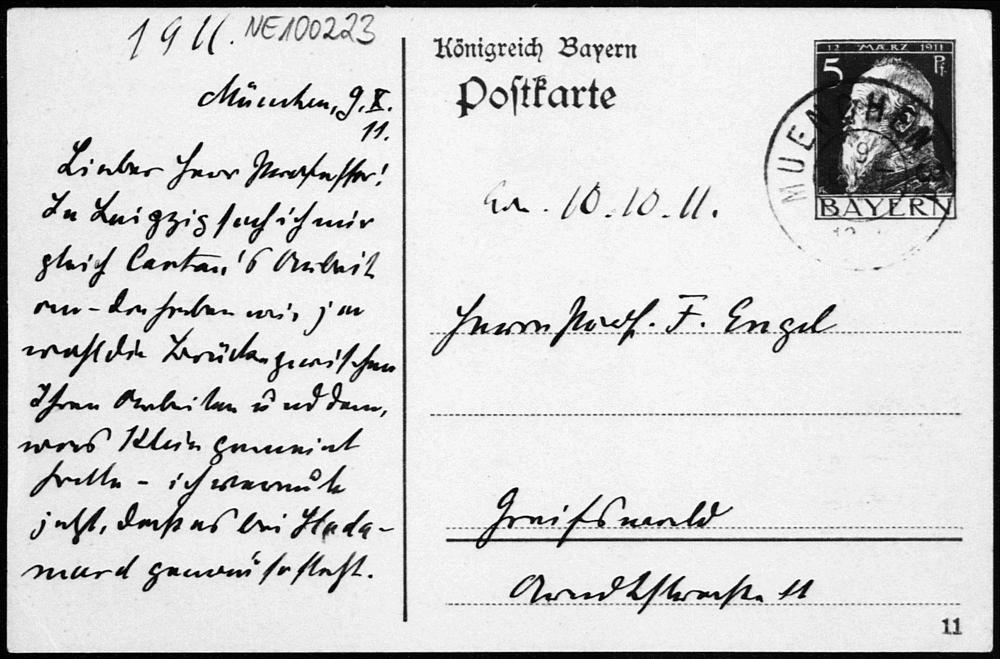 1911. NE100223
München, 9.X.
11.
Lieber Herr Professor!
In Leipzig sah ich mir
gleich Cartan's Arbeit
an – da haben wir ja
wohl die Brücke zwischen
Ihren Arbeiten und dem,
was Klein gemeint
hatte – ich vermute
jetzt, daß es bei Hada-
mard genau so steht.
Königreich Bayern
Postkarte
12 MÆRZ 1911
5 Pf.
BAYERN
MUENCHEN
10.10.11.
Herrn Prof. F. Engel
Greifswald
Arndtstrasse 11
11